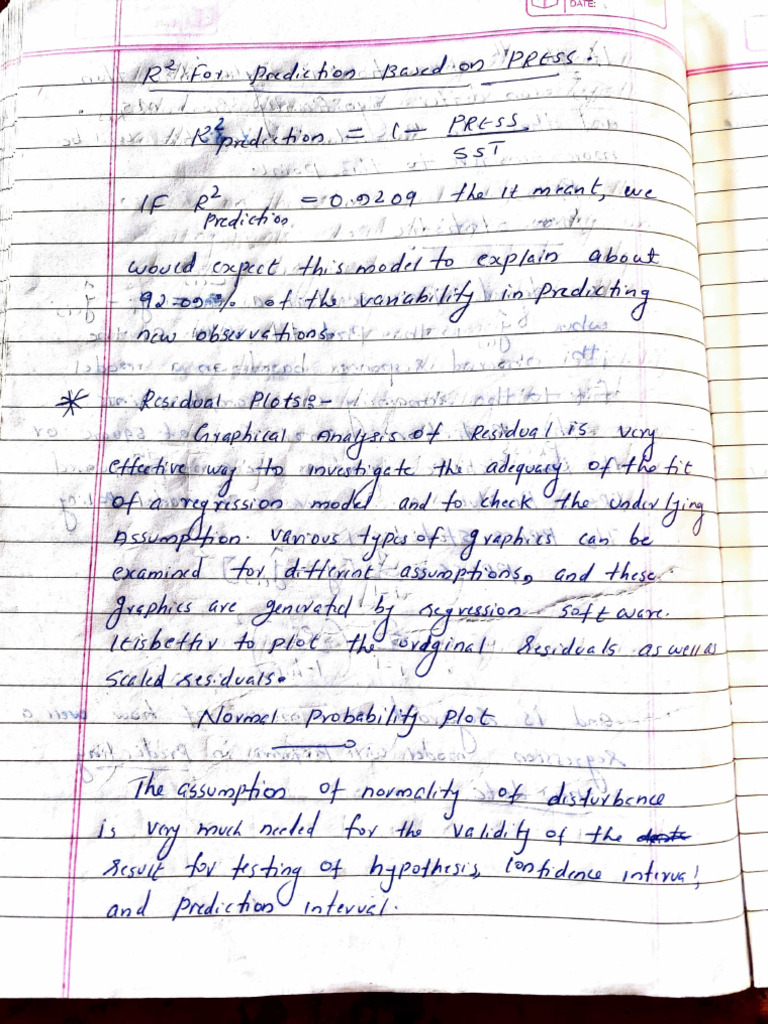 DATE:
R² For Prediction Based on PRESS.
R² prediction = 1 - PRESS
SST
IF R² Prediction = 0.9209 the it meant, we
would expect this model to explain about
92.09% of the variability in predicting
new observations.
* Residual Plots:-
Graphical Analysis of Residual is very
effective way to investigate the adequacy of the fit
of a regression model and to check the underlying
Assumption. various types of graphics can be
examined for different assumptions, and these
graphics are generated by regression software.
It is better to plot the original residuals as well as
scaled residuals.
Normal Probability Plot
The assumption of normality of disturbence
is very much needed for the validity of the
result for testing of hypothesis, confidence interval,
and prediction interval.